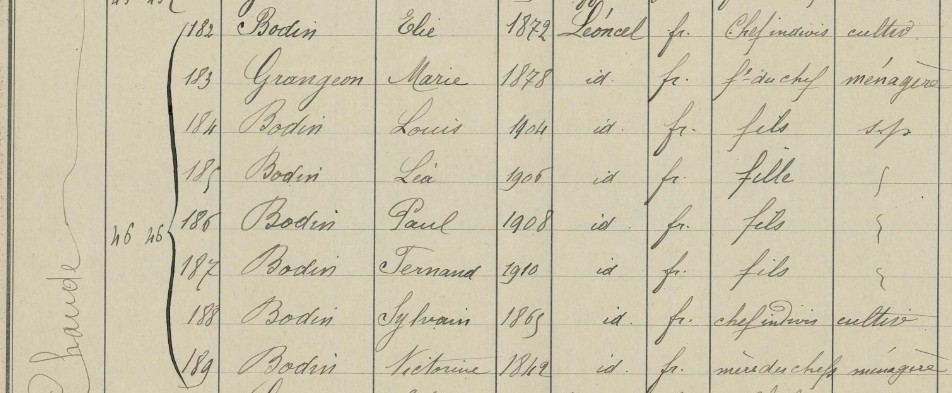 182 Bodin Elie 1872 Léoncel fr. Chef indivis cultivr
183 Grangeon Marie 1878 id. fr. fe du chef ménagère
184 Bodin Louis 1904 id. fr. fils s.p
185 Bodin Léa 1906 id fr. fille
46 46 186 Bodin Paul 1908 id fr. fils
187 Bodin Fernand 1910 id fr. fils
188 Bodin Sylvain 1865 id. fr. chef indivis cultivr
189 Bodin Victorine 1842 id. fr. mère du chefs ménagère